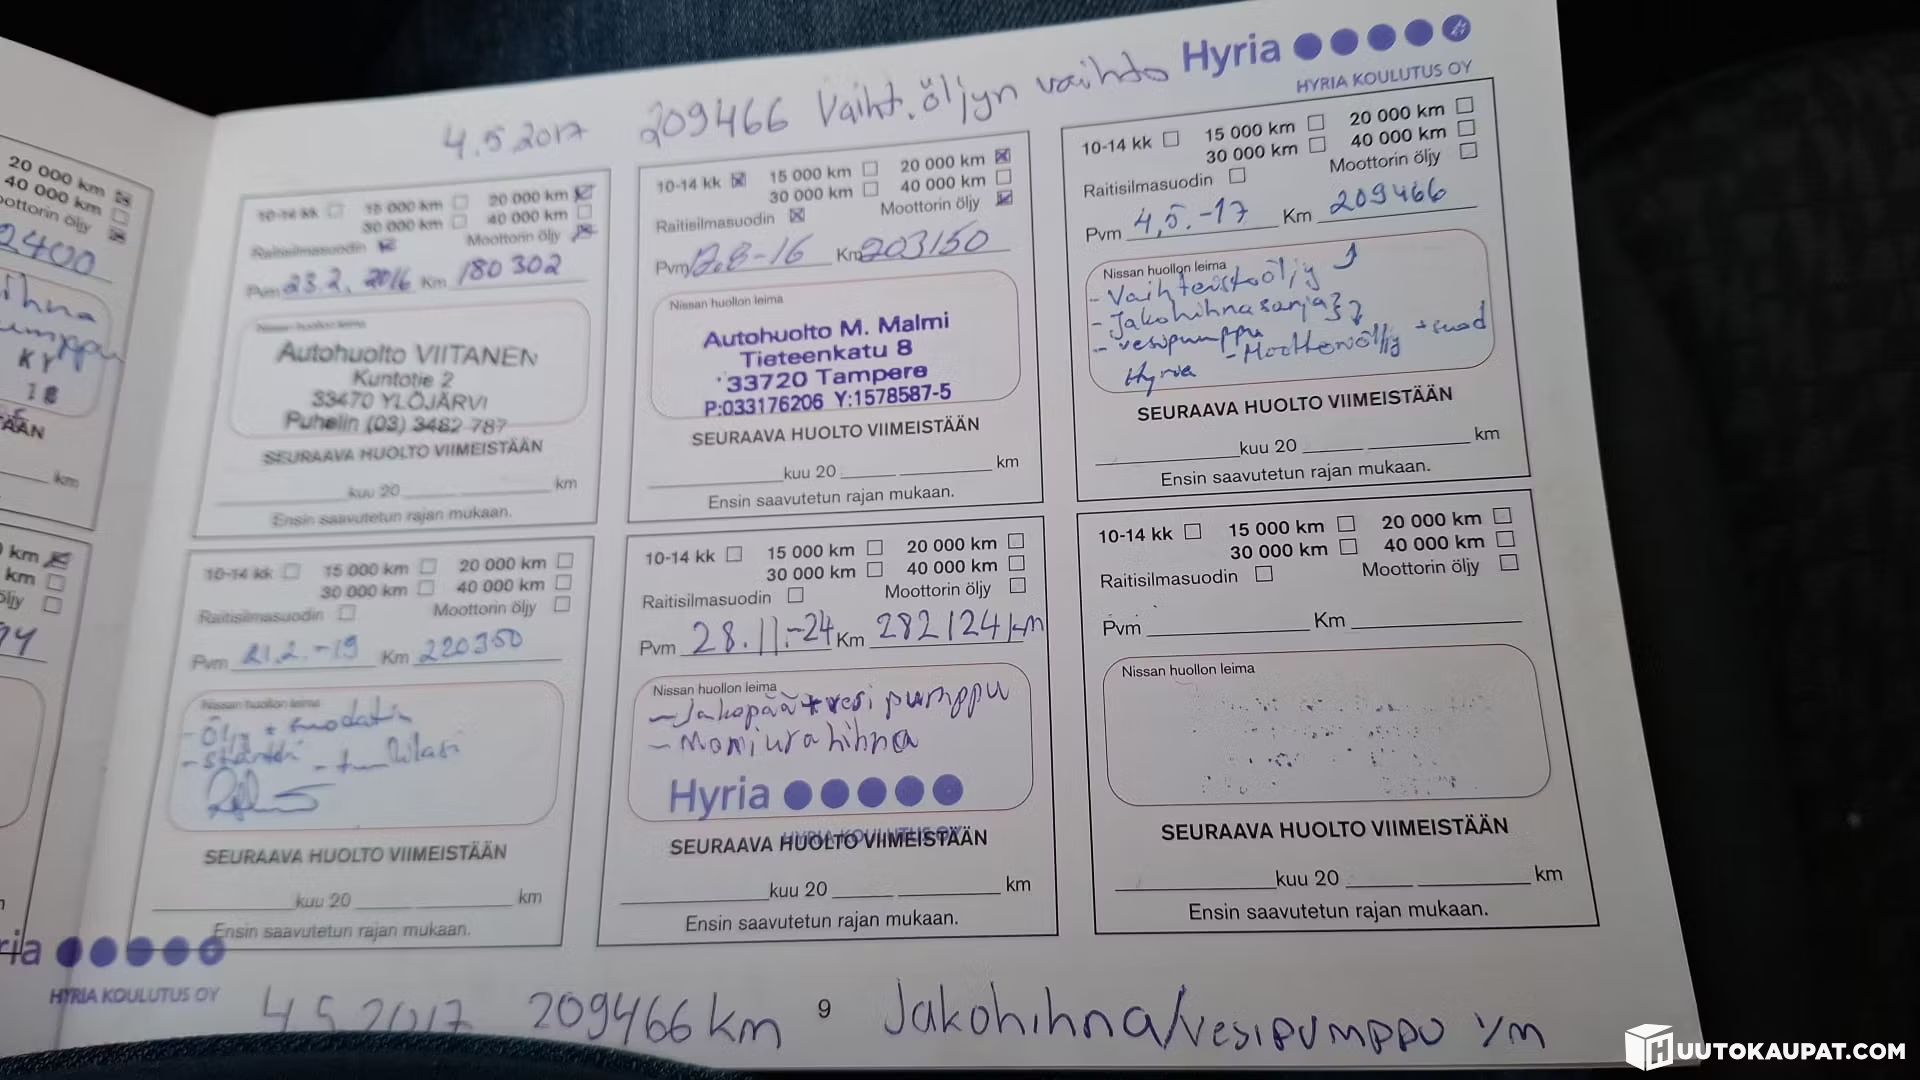 4.5.2017 209466 Vaiht.öljyn vaihto Hyria
HYRIA KOULUTUS OY
20 000 km
40 000 km
oottorin öljy
2400
ihna
umppu
KY
18
ÄÄN
km
10-14 kk 15 000 km 20 000 km
30 000 km 40 000 km
Raitisilmasuodin Moottorin öljy
Pvm 23.2.2016 Km 180 302
Nissan huollon leima
Autohuolto VIITANEN
Kuntotie 2
33470 YLÖJÄRVI
Puhelin (03) 3482 787
SEURAAVA HUOLTO VIIMEISTÄÄN
kuu 20 km
Ensin saavutetun rajan mukaan.
10-14 kk 15 000 km 20 000 km
30 000 km 40 000 km
Raitisilmasuodin Moottorin öljy
Pvm 12.8-16 Km 203150
Nissan huollon leima
Autohuolto M. Malmi
Tieteenkatu 8
33720 Tampere
P:033176206 Y:1578587-5
SEURAAVA HUOLTO VIIMEISTÄÄN
kuu 20 km
Ensin saavutetun rajan mukaan.
10-14 kk 15 000 km 20 000 km
30 000 km 40 000 km
Raitisilmasuodin Moottorin öljy
Pvm 4,5.-17 Km 209466
Nissan huollon leima
- Vaihteistoöljy
- Jakohihnasarja
- vesipumppu
- Moottoriöljy + suod
Hyria
SEURAAVA HUOLTO VIIMEISTÄÄN
kuu 20 km
Ensin saavutetun rajan mukaan.
km
km
öljy
94
10-14 kk 15 000 km 20 000 km
30 000 km 40 000 km
Raitisilmasuodin Moottorin öljy
Pvm 21.2.-19 Km 220350
Nissan huollon leima
- Öljy + suodatin
SEURAAVA HUOLTO VIIMEISTÄÄN
kuu 20 km
Ensin saavutetun rajan mukaan.
10-14 kk 15 000 km 20 000 km
30 000 km 40 000 km
Raitisilmasuodin Moottorin öljy
Pvm 28.11.-24 Km 282124 km
Nissan huollon leima
- Jakopää + vesipumppu
- Moniurahihna
Hyria
HYRIA KOULUTUS OY
SEURAAVA HUOLTO VIIMEISTÄÄN
kuu 20 km
Ensin saavutetun rajan mukaan.
10-14 kk 15 000 km 20 000 km
30 000 km 40 000 km
Raitisilmasuodin Moottorin öljy
Pvm Km
Nissan huollon leima
SEURAAVA HUOLTO VIIMEISTÄÄN
kuu 20 km
Ensin saavutetun rajan mukaan.
ria
HYRIA KOULUTUS OY
4.5.2017 209466 km 9 Jakohihna/vesipumppu v/m
HUUTOKAUPAT.COM